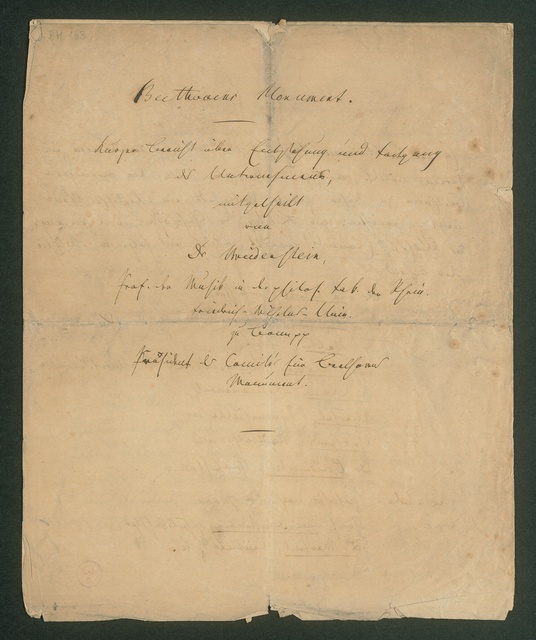 Beethovens Monument.
Kurzer Bericht über Entstehung und Fortgang
des Unternehmens,
mitgetheilt
von
Dr Breidenstein,
Prof. der Musik in der philos. Fak. der Rhein.
Friedrich-Wilhelms-Univ.
zu
Präsident des Comités für Beethovens
Monument.